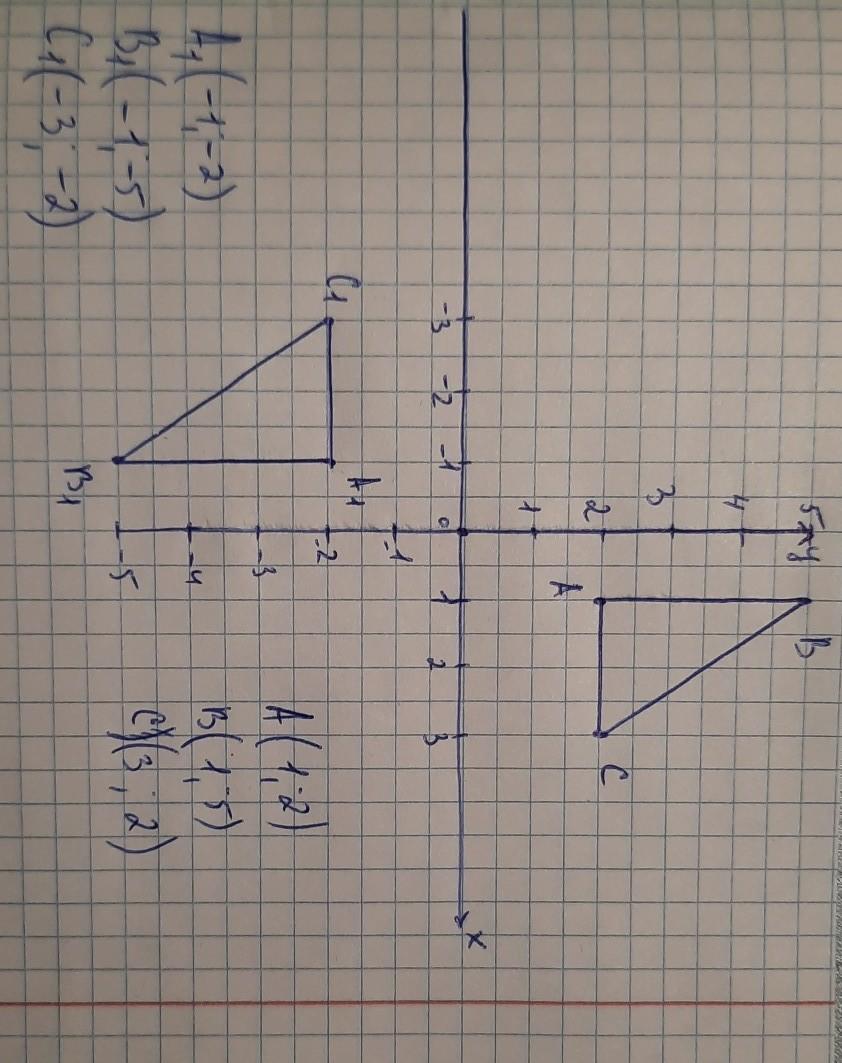 5 y
B
4
3
2
A
C
1
-3 -2 -1 0 1 2 3 x
-1
C1
A1
-2
-3
-4
B1
-5
A(1; 2)
B(1; 5)
C(3; 2)
A1(-1; -2)
B1(-1; -5)
C1(-3; -2)